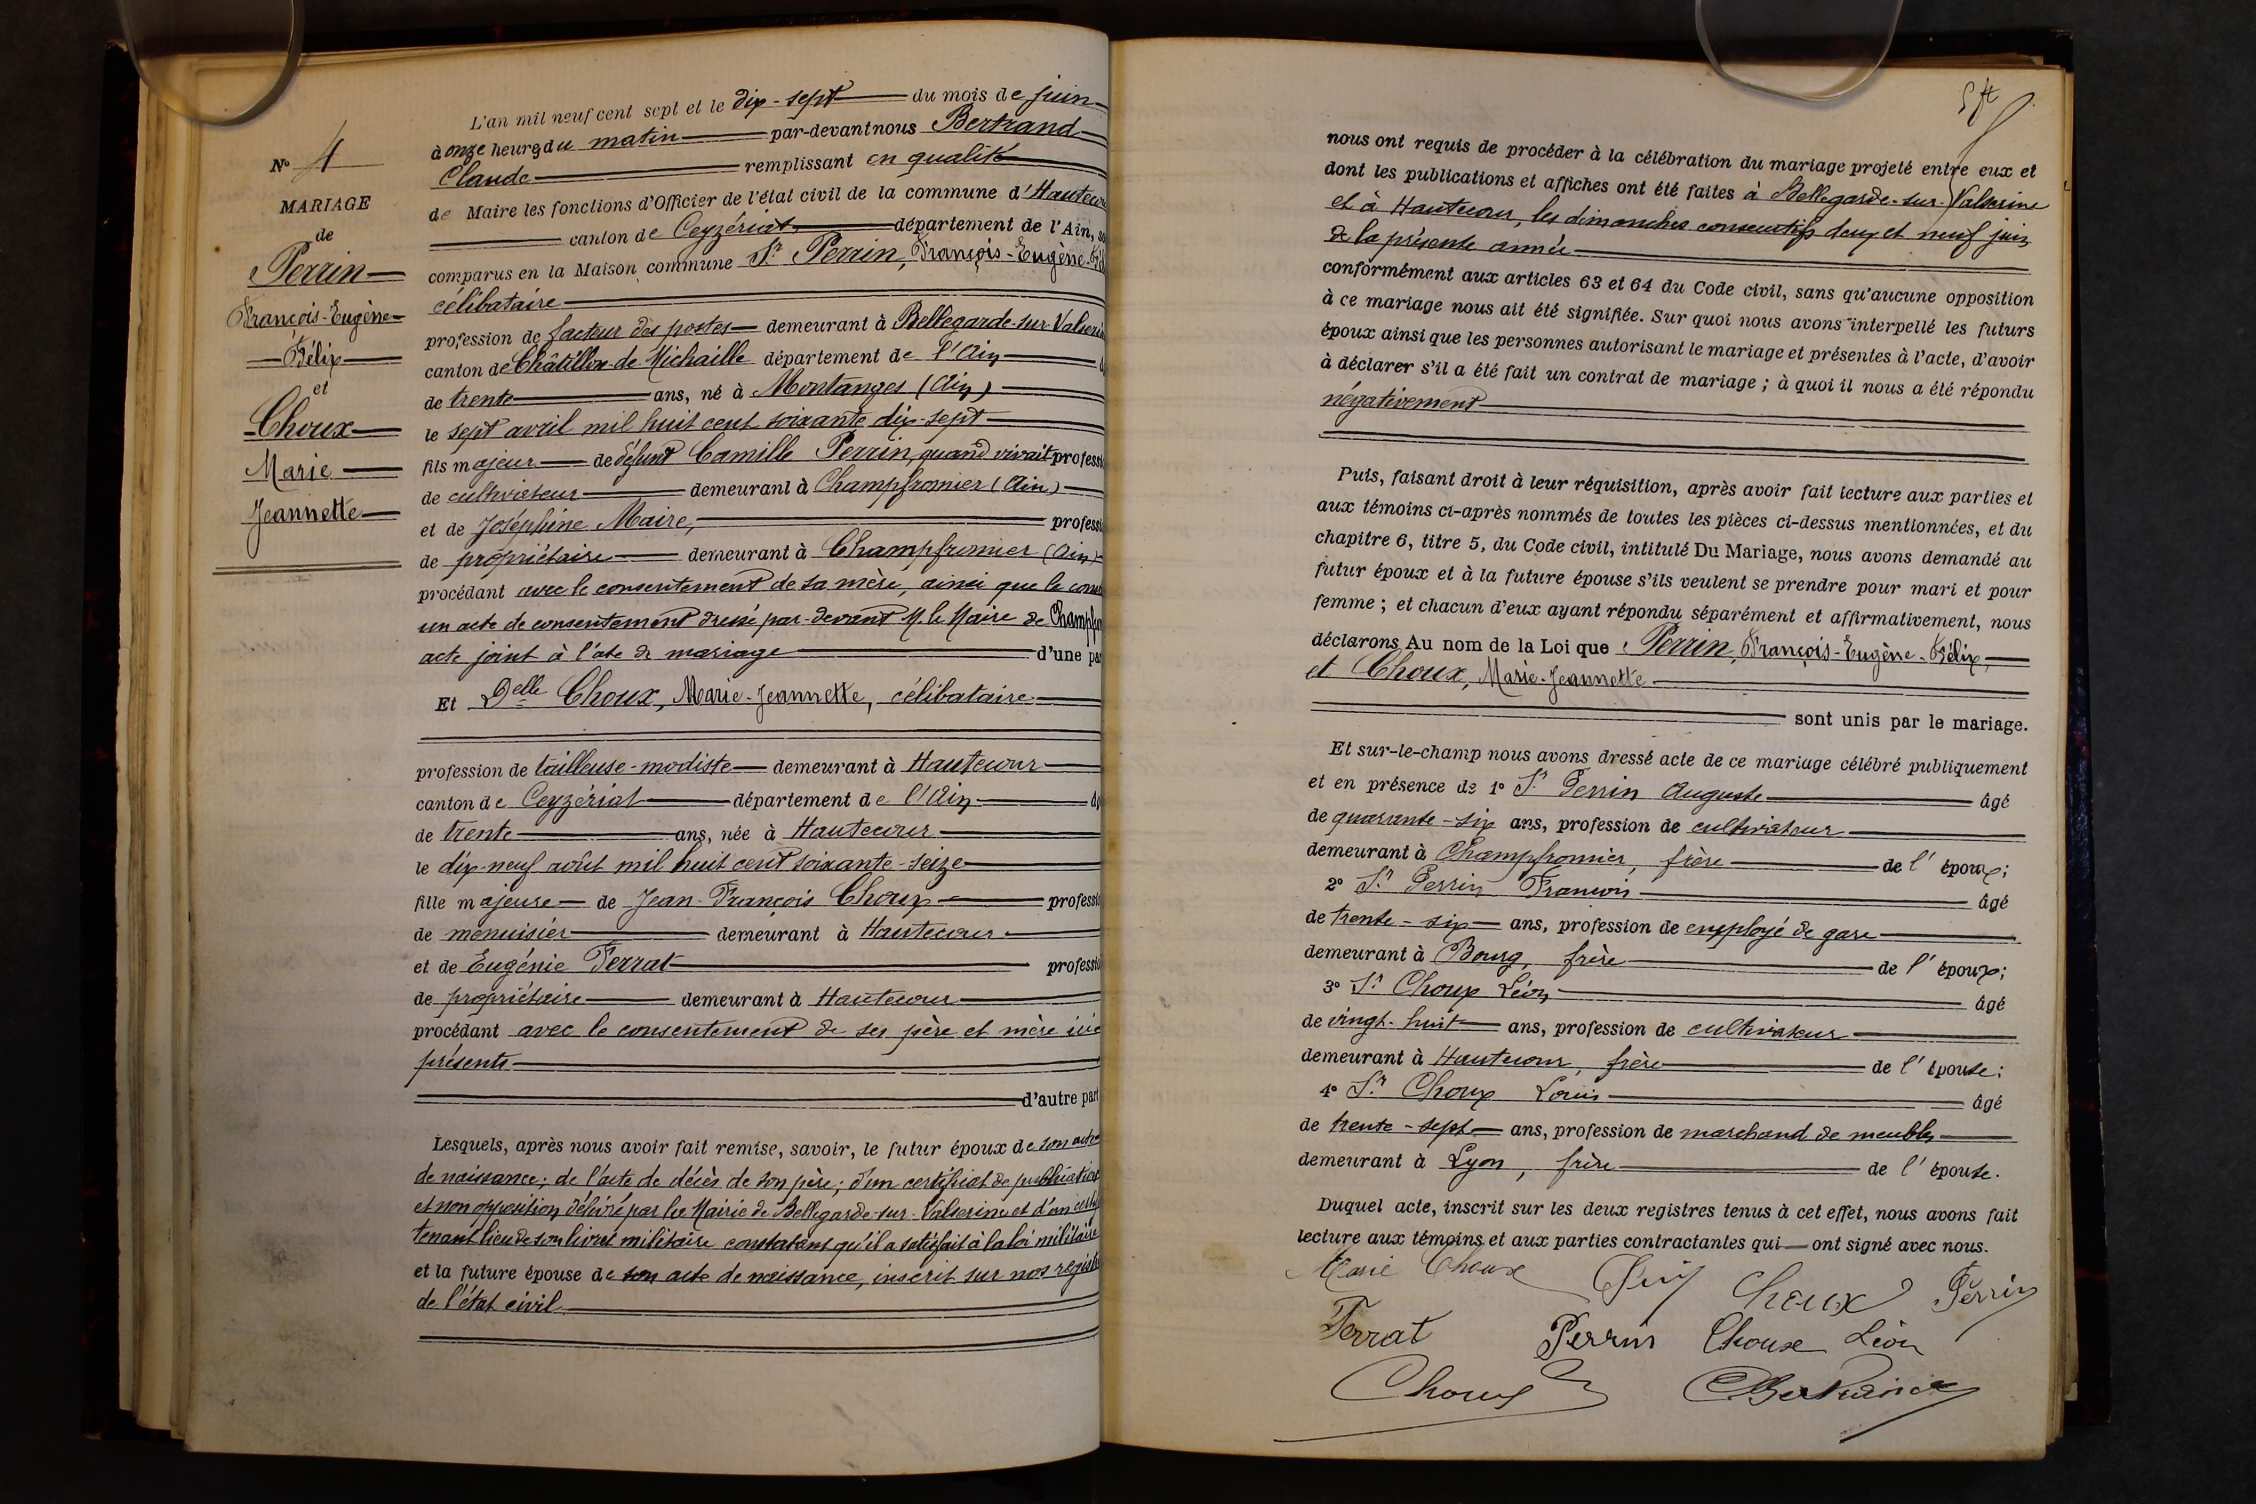 N° 4
MARIAGE
de
Perrin
François-Eugène-
Félix
et
Choux
Marie
Jeannette
L'an mil neuf cent sept et le dix-sept du mois de juin
à onze heures du matin par-devant nous Bertrand
Claude remplissant en qualité
de Maire les fonctions d'Officier de l'état civil de la commune d'Hautecour
canton de Ceyzériat département de l'Ain, so
comparus en la Maison commune Sr Perrin, François-Eugène-Fél
célibataire
profession de facteur des postes demeurant à Bellegarde-sur-Valserin
canton de Châtillon-de-Michaille département de l'Ain
de trente ans, né à Montanges (Ain)
le sept avril mil huit cent soixante dix-sept
fils majeur de défunt Camille Perrin, quand vivait professi
de cultivateur demeurant à Champfromier (Ain)
et de Joséphine Maire, professi
de propriétaire demeurant à Champfromier (Ain)
procédant avec le consentement de sa mère, ainsi que le cons
un acte de consentement dressé par-devant M. le Maire de Champfro
acte joint à l'ate de mariage d'une pa
Et Delle Choux, Marie-Jeannette, célibataire
profession de tailleuse-modiste demeurant à Hautecour
canton de Ceyzériat département de l'Ain
de trente ans, née à Hautecour
le dix-neuf août mil huit cent soixante-seize
fille majeure de Jean-François Choux professi
de menuisier demeurant à Hautecour
et de Eugénie Ferrat professi
de propriétaire demeurant à Hautecour
procédant avec le consentement de ses père et mère ici
présents
d'autre part
Lesquels, après nous avoir fait remise, savoir, le futur époux de son acte
de naissance; de l'acte de décès de son père; d'un certificat de publication
et non opposition délivré par la Mairie de Bellegarde-sur-Valserine et d'un
tenant lieu de son livret militaire constatant qu'il a satisfait à la loi militaire
et la future épouse de son acte de naissance, inscrit sur nos regist
de l'état civil
nous ont requis de procéder à la célébration du mariage projeté entre eux et
dont les publications et affiches ont été faites à Bellegarde-sur-Valserine
et à Hautecour, les dimanches consecutifs deux et neuf juin
de la présente année
conformément aux articles 63 et 64 du Code civil, sans qu'aucune opposition
à ce mariage nous ait été signifiée. Sur quoi nous avons interpellé les futurs
époux ainsi que les personnes autorisant le mariage et présentes à l'acte, d'avoir
à déclarer s'il a été fait un contrat de mariage; à quoi il nous a été répondu
négativement
Puis, faisant droit à leur réquisition, après avoir fait lecture aux parties et
aux témoins ci-après nommés de toutes les pièces ci-dessus mentionnées, et du
chapitre 6, titre 5, du Code civil, intitulé Du Mariage, nous avons demandé au
futur époux et à la future épouse s'ils veulent se prendre pour mari et pour
femme; et chacun d'eux ayant répondu séparément et affirmativement, nous
déclarons Au nom de la Loi que Perrin, François-Eugène-Félix,
et Choux, Marie-Jeannette
sont unis par le mariage.
Et sur-le-champ nous avons dressé acte de ce mariage célébré publiquement
et en présence de 1° Sr Perrin Auguste âgé
de quarante-six ans, profession de cultivateur
demeurant à Champfromier, frère de l'époux;
2° Sr Perrin François âgé
de trente-six ans, profession de employé de gare
demeurant à Bourg, frère de l'époux;
3° Sr Choux Léon âgé
de vingt-huit ans, profession de cultivateur
demeurant à Hautecour, frère de l'épouse;
4° Sr Choux Louis âgé
de trente-sept ans, profession de marchand de meubles
demeurant à Lyon, frère de l'épouse.
Duquel acte, inscrit sur les deux registres tenus à cet effet, nous avons fait
lecture aux témoins et aux parties contractantes qui ont signé avec nous.
Marie Choux Choux Perrin
Ferrat Perrin Choux Léon
Choux CBertrand